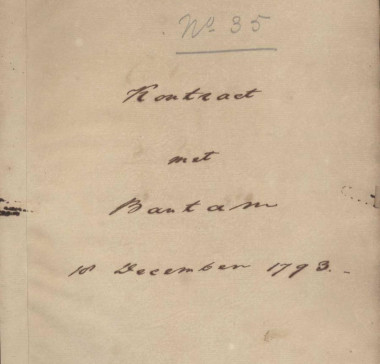 No 35
Kontract
met
Bantam
10 December 1793.